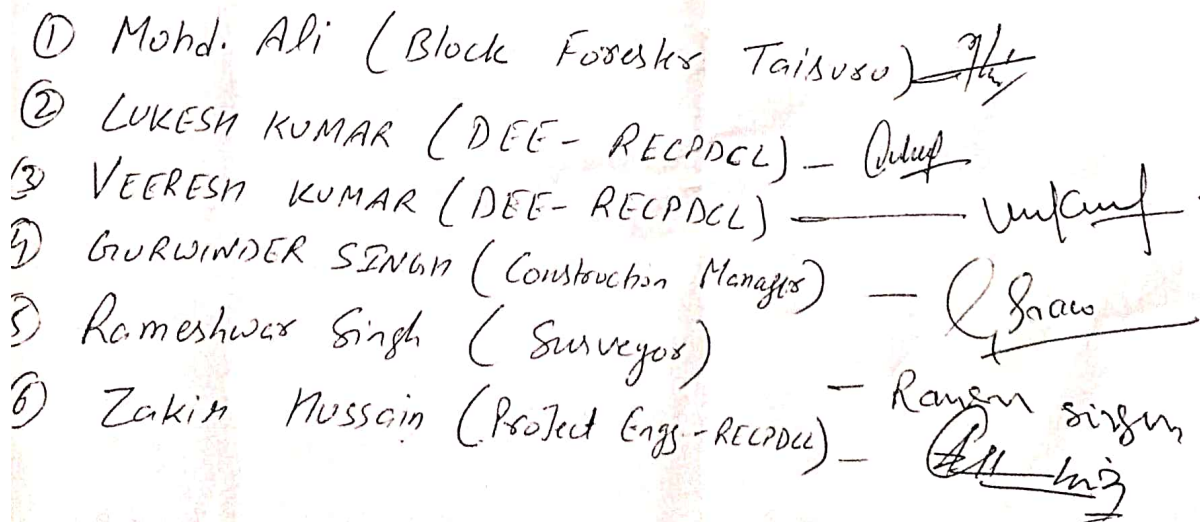 ① Mohd. Ali (Block Forester Taisuru)
② LUKESH KUMAR (DEE- RECPDCL) -
③ VEERESH KUMAR (DEE- RECPDCL) -
④ GURWINDER SINGH (Construction Manager) -
⑤ Rameshwar Singh (Surveyor) -
⑥ Zakir Hussain (Project Engg.-RECPDCL) -